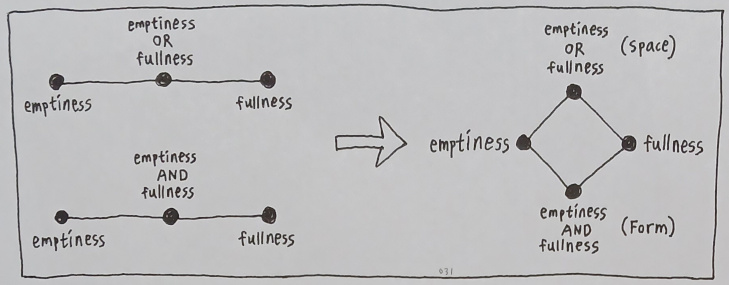 emptiness
OR
fullness
emptiness
fullness
emptiness
AND
fullness
emptiness
fullness
emptiness
OR
fullness
(Space)
emptiness
fullness
emptiness
AND
fullness
(Form)
031